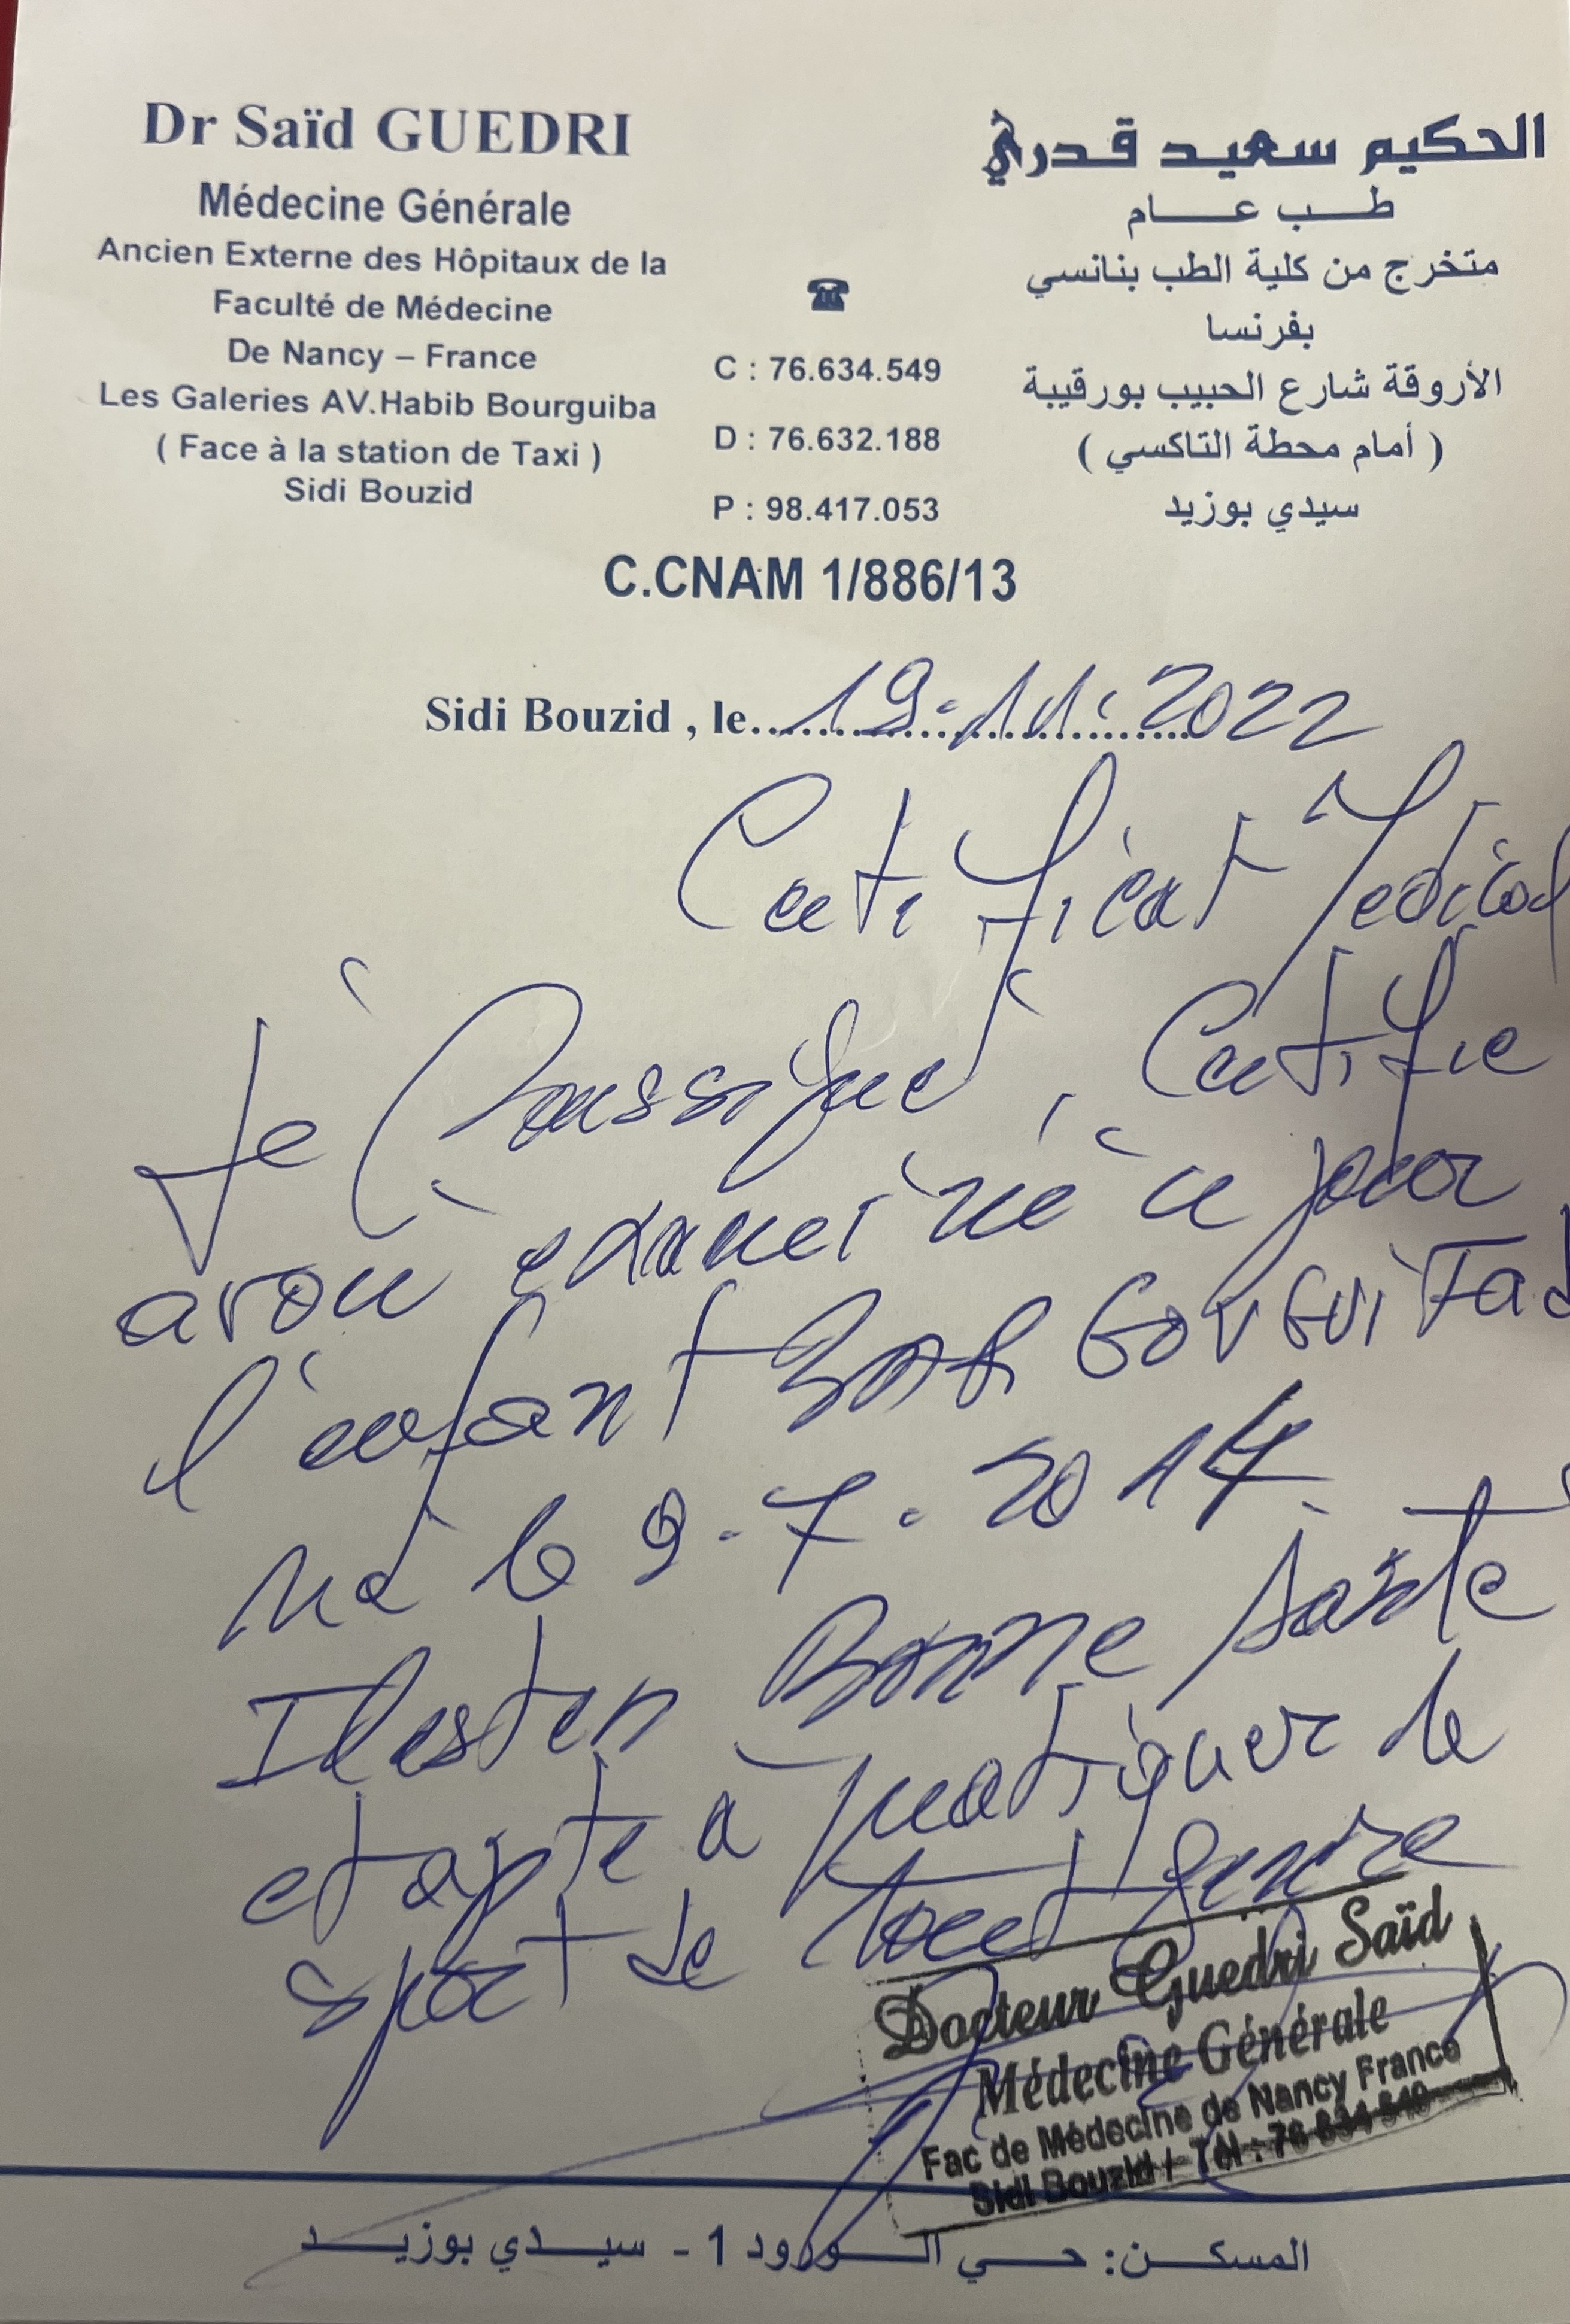 Dr Saïd GUEDRI
Médecine Générale
Ancien Externe des Hôpitaux de la
Faculté de Médecine
De Nancy – France
Les Galeries AV.Habib Bourguiba
( Face à la station de Taxi )
Sidi Bouzid
☎
C : 76.634.549
D : 76.632.188
P : 98.417.053
الحكيم سعيد قدري
طب عام
متخرج من كلية الطب بنانسي
بفرنسا
الأروقة شارع الحبيب بورقيبة
( أمام محطة التاكسي )
سيدي بوزيد
C.CNAM 1/886/13
Sidi Bouzid , le 19.11.2022
Certificat Médical
Je Soussigné, Certifie
avoir examiné ce jour
l'enfant
né le 9.7.2014
Il est en Bonne santé
et apte à pratiquer le
sport de tout genre
Docteur Guedri Saïd
Médecine Générale
Fac de Médecine de Nancy France
Sidi Bouzid / Tél : 76 634 549
المسكن: حي الورود 1 - سيدي بوزيد